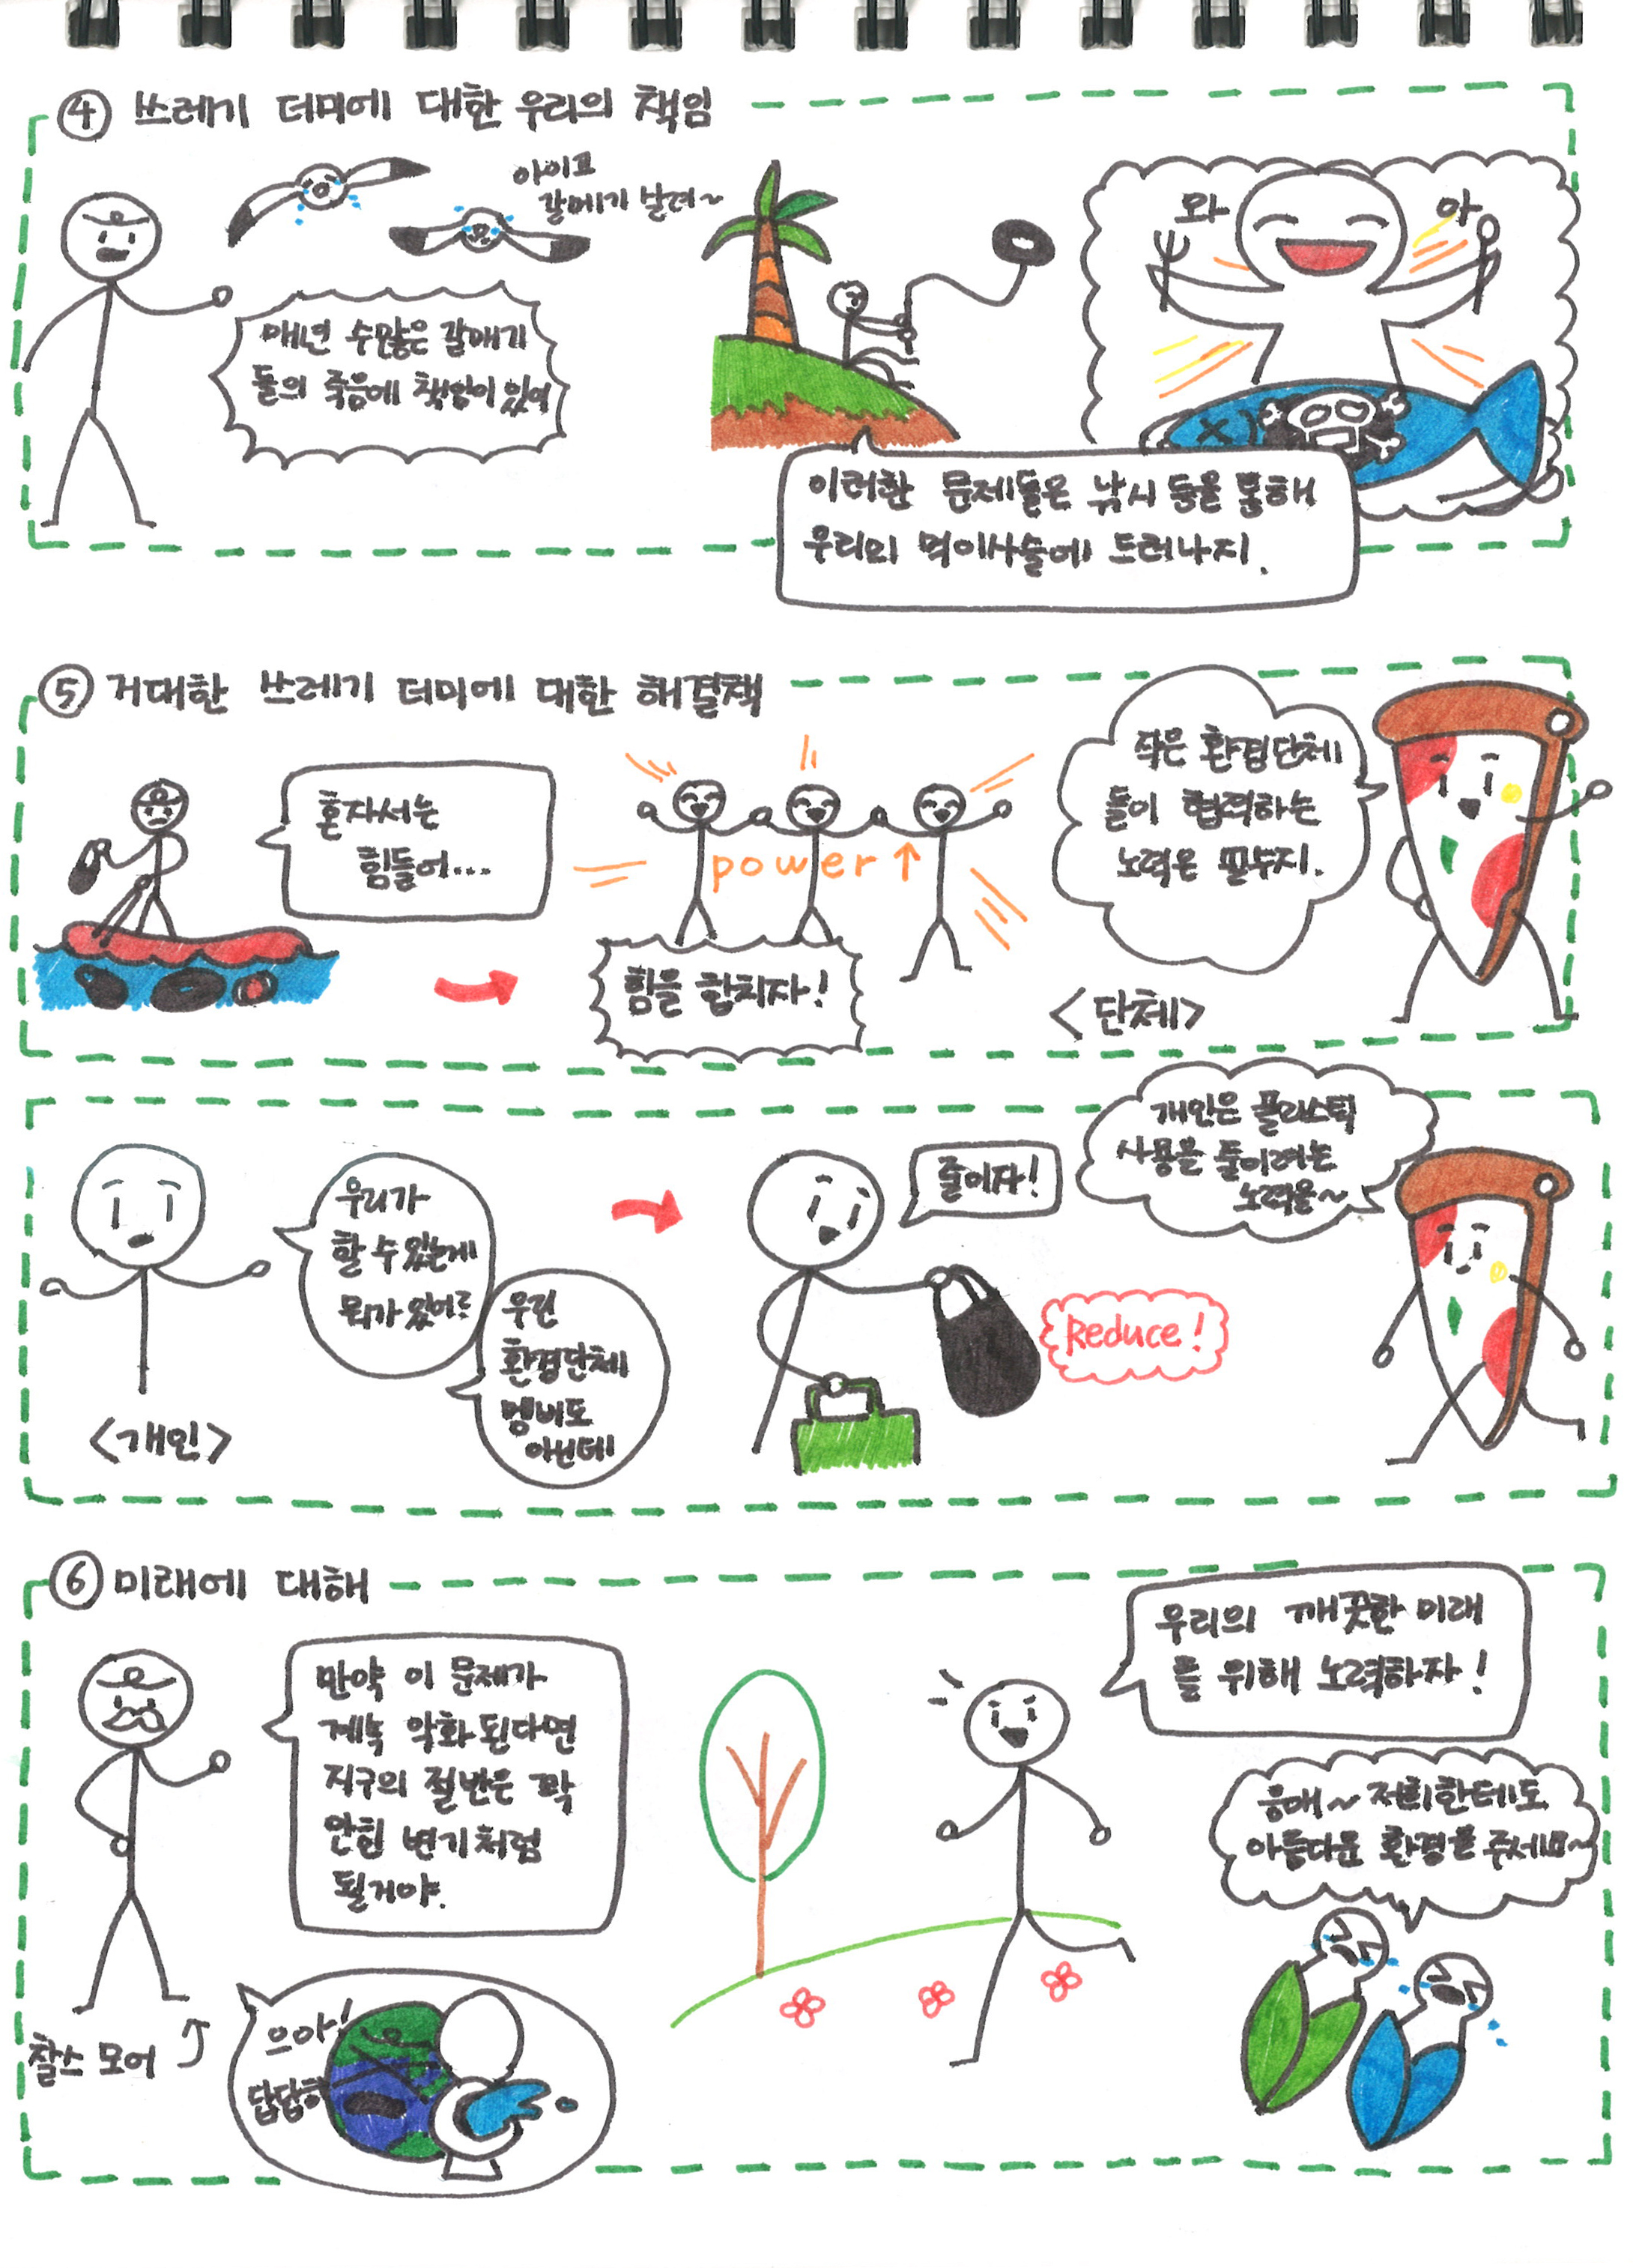 ④ 쓰레기 더미에 대한 우리의 책임
아이고
갈메기 살려~
매년 수많은 갈매기
들의 죽음에 책임이 있어
와 아
이러한 문제들은 낚시 등을 통해
우리의 먹이사슬에 드러나지.
⑤ 거대한 쓰레기 더미에 대한 해결책
혼자서는
힘들어...
power↑
힘을 합치자!
작은 환경단체
들이 협력하는
노력은 필수지.
<단체>
우리가
할 수 있는게
뭐가 있어?
우린
환경단체
멤버도
아닌데
<개인>
줄이자!
Reduce!
개인은 플라스틱
사용을 줄이려는
노력을~
⑥ 미래에 대해
만약 이 문제가
계속 악화된다면
지구의 절반은 꽉
안힌 변기처럼
될거야.
찰스 모어
으아!
답답해
우리의 깨끗한 미래
를 위해 노력하자!
응애~ 저희한테도
아름다운 환경을 주세요~